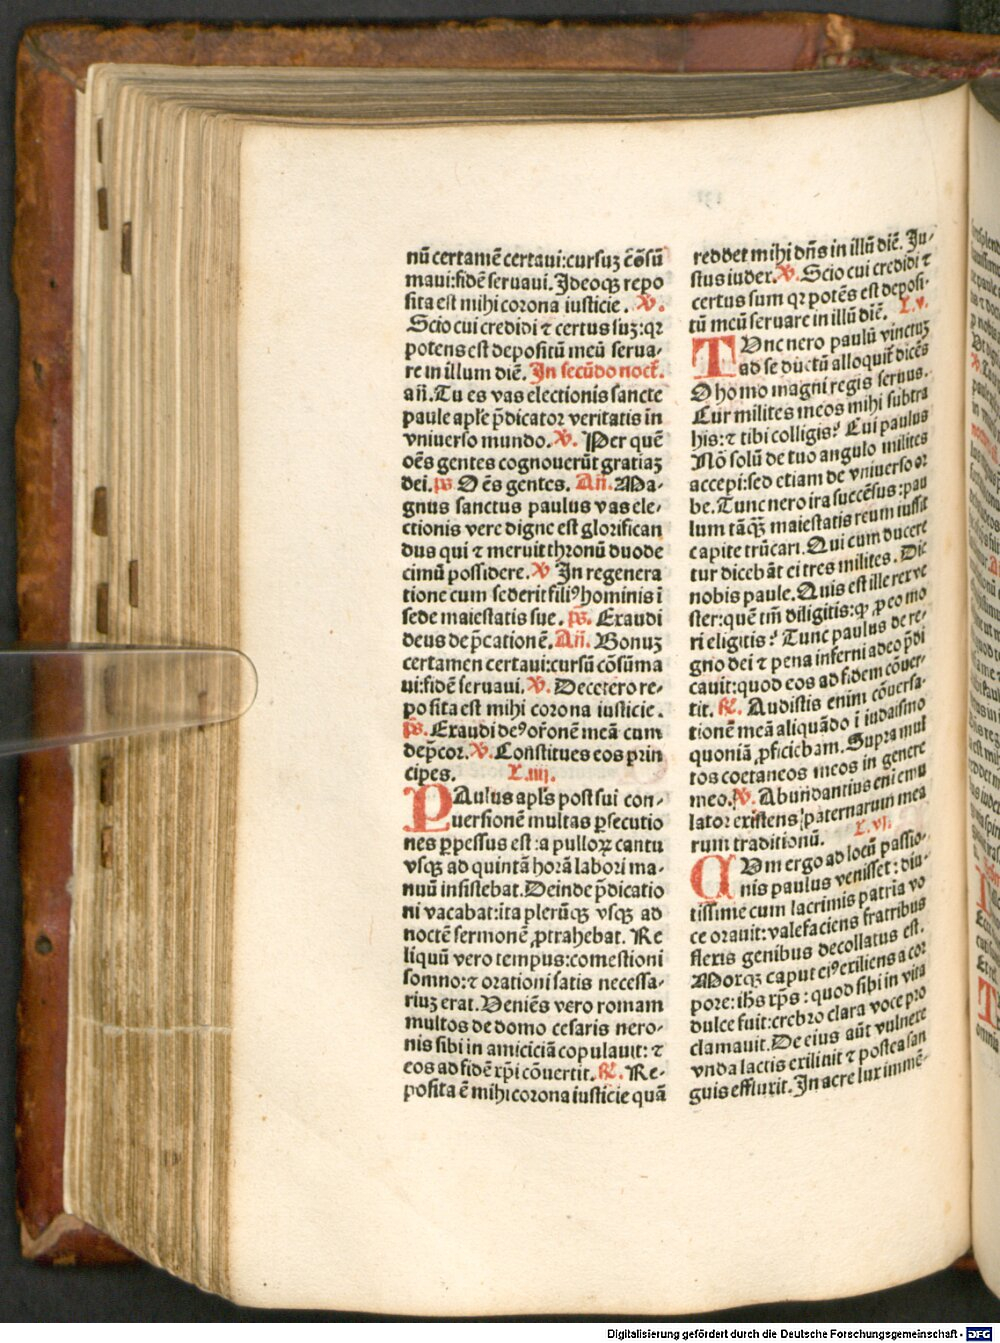 nū certamē certaui:cursuꝫ cōsū
maui:fidē seruaui. Ideocꝫ repo
sita est mihi corona iusticie. ℣.
Scio cui credidi ⁊ certus suꝫ:qꝛ
potens est depositū meū serua⸗
re in illum diē. In secūdo noct̄.
an̄. Tu es vas electionis sancte
paule apl'e p̄dicator veritatis in
vniuerso mundo. ℣. Per quē
oēs gentes cognouerūt gratiaꝫ
dei. ps̄ Oēs gentes. An̄. Ma⸗
gnus sanctus paulus vas ele⸗
ctionis vere digne est glorifican
dus qui ⁊ meruit thronū duode
cimū possidere. ℣ In regenera
tione cum sederit filiꝰ hominis ī
sede maiestatis sue. ps̄. Exaudi
deus dep̄cationē. An̄. Bonuꝫ
certamen certaui:cursū cōsūma
ui:fidē seruaui. ℣. De cetero re⸗
posita est mihi corona iusticie.
ps̄. Exaudi deꝰ or̄onē meā cum
dep̄cor. ℣. Constitues eos prin
cipes. L.iiij.
PAulus apl's post sui con⸗
uersionē multas ꝑsecutio
nes ꝑpessus est:a pulloꝝ cantu
vsqꝫ ad quintā horā labori ma⸗
nuū insistebat. Deinde p̄dicatio
ni vacabat:ita plerūqꝫ vsqꝫ ad
noctē sermonē ꝓtrahebat. Re
liquū vero tempus:comestioni
somno:⁊ orationi satis necessa⸗
riuꝫ erat. Veniēs vero romam
multos de domo cesaris nero⸗
nis sibi in amiciciā copulauit:⁊
eos ad fidē xp̄i cōuertit. ℟. Re⸗
posita ē mihi corona iusticie quā
reddet mihi dn̄s in illū diē. Iu⸗
stus iudex. ℣. Scio cui credidi ⁊
certus sum qꝛ potēs est deposi⸗
tū meū seruare in illū diē. L.v.
TUnc nero paulū vinctuꝫ
ad se ductū alloquit̄ dicēs
O homo magni regis seruus.
Cur milites meos mihi subtra
his:⁊ tibi colligis? Cui paulus
Nō solū de tuo angulo milites
accepi:sed etiam de vniuerso or
be. Tunc nero ira succēsus:pau
lum tāqꝫ maiestatis reum iussit
capite trūcari. Qui cum ducere
tur dicebāt ei tres milites. Dic
nobis paule. Quis est ille rex ve
ster:quē tm̄ diligitis:ꝙ ꝓ eo mo
ri eligitis? Tunc paulus de re⸗
gno dei ⁊ pena inferni adeo p̄di
cauit:quod eos ad fidem cōuer⸗
tit. ℟. Audistis enim cōuersa⸗
tionē meā aliquādo ī iudaismo
quoniā ꝓficiebam. Supra mul
tos coetaneos meos in genere
meo. ℣. Abundantius eni emu
lator existens paternarum mea
rum traditionū. L.vj.
CUm ergo ad locū passio⸗
nis paulus venisset:diu⸗
tissime cum lacrimis patria vo
ce orauit:valefaciens fratribus
flexis genibus decollatus est.
Moxqꝫ caput eiꝰ exiliens a cor
pore:ih̄s xp̄s:quod sibi in vita
dulce fuit:crebro clara voce pro
clamauit. De eius aūt vulnere
vnda lactis exiliuit ⁊ postea san
guis effluxit. In aere lux immē⸗
Digitalisierung gefördert durch die Deutsche Forschungsgemeinschaft - DFG